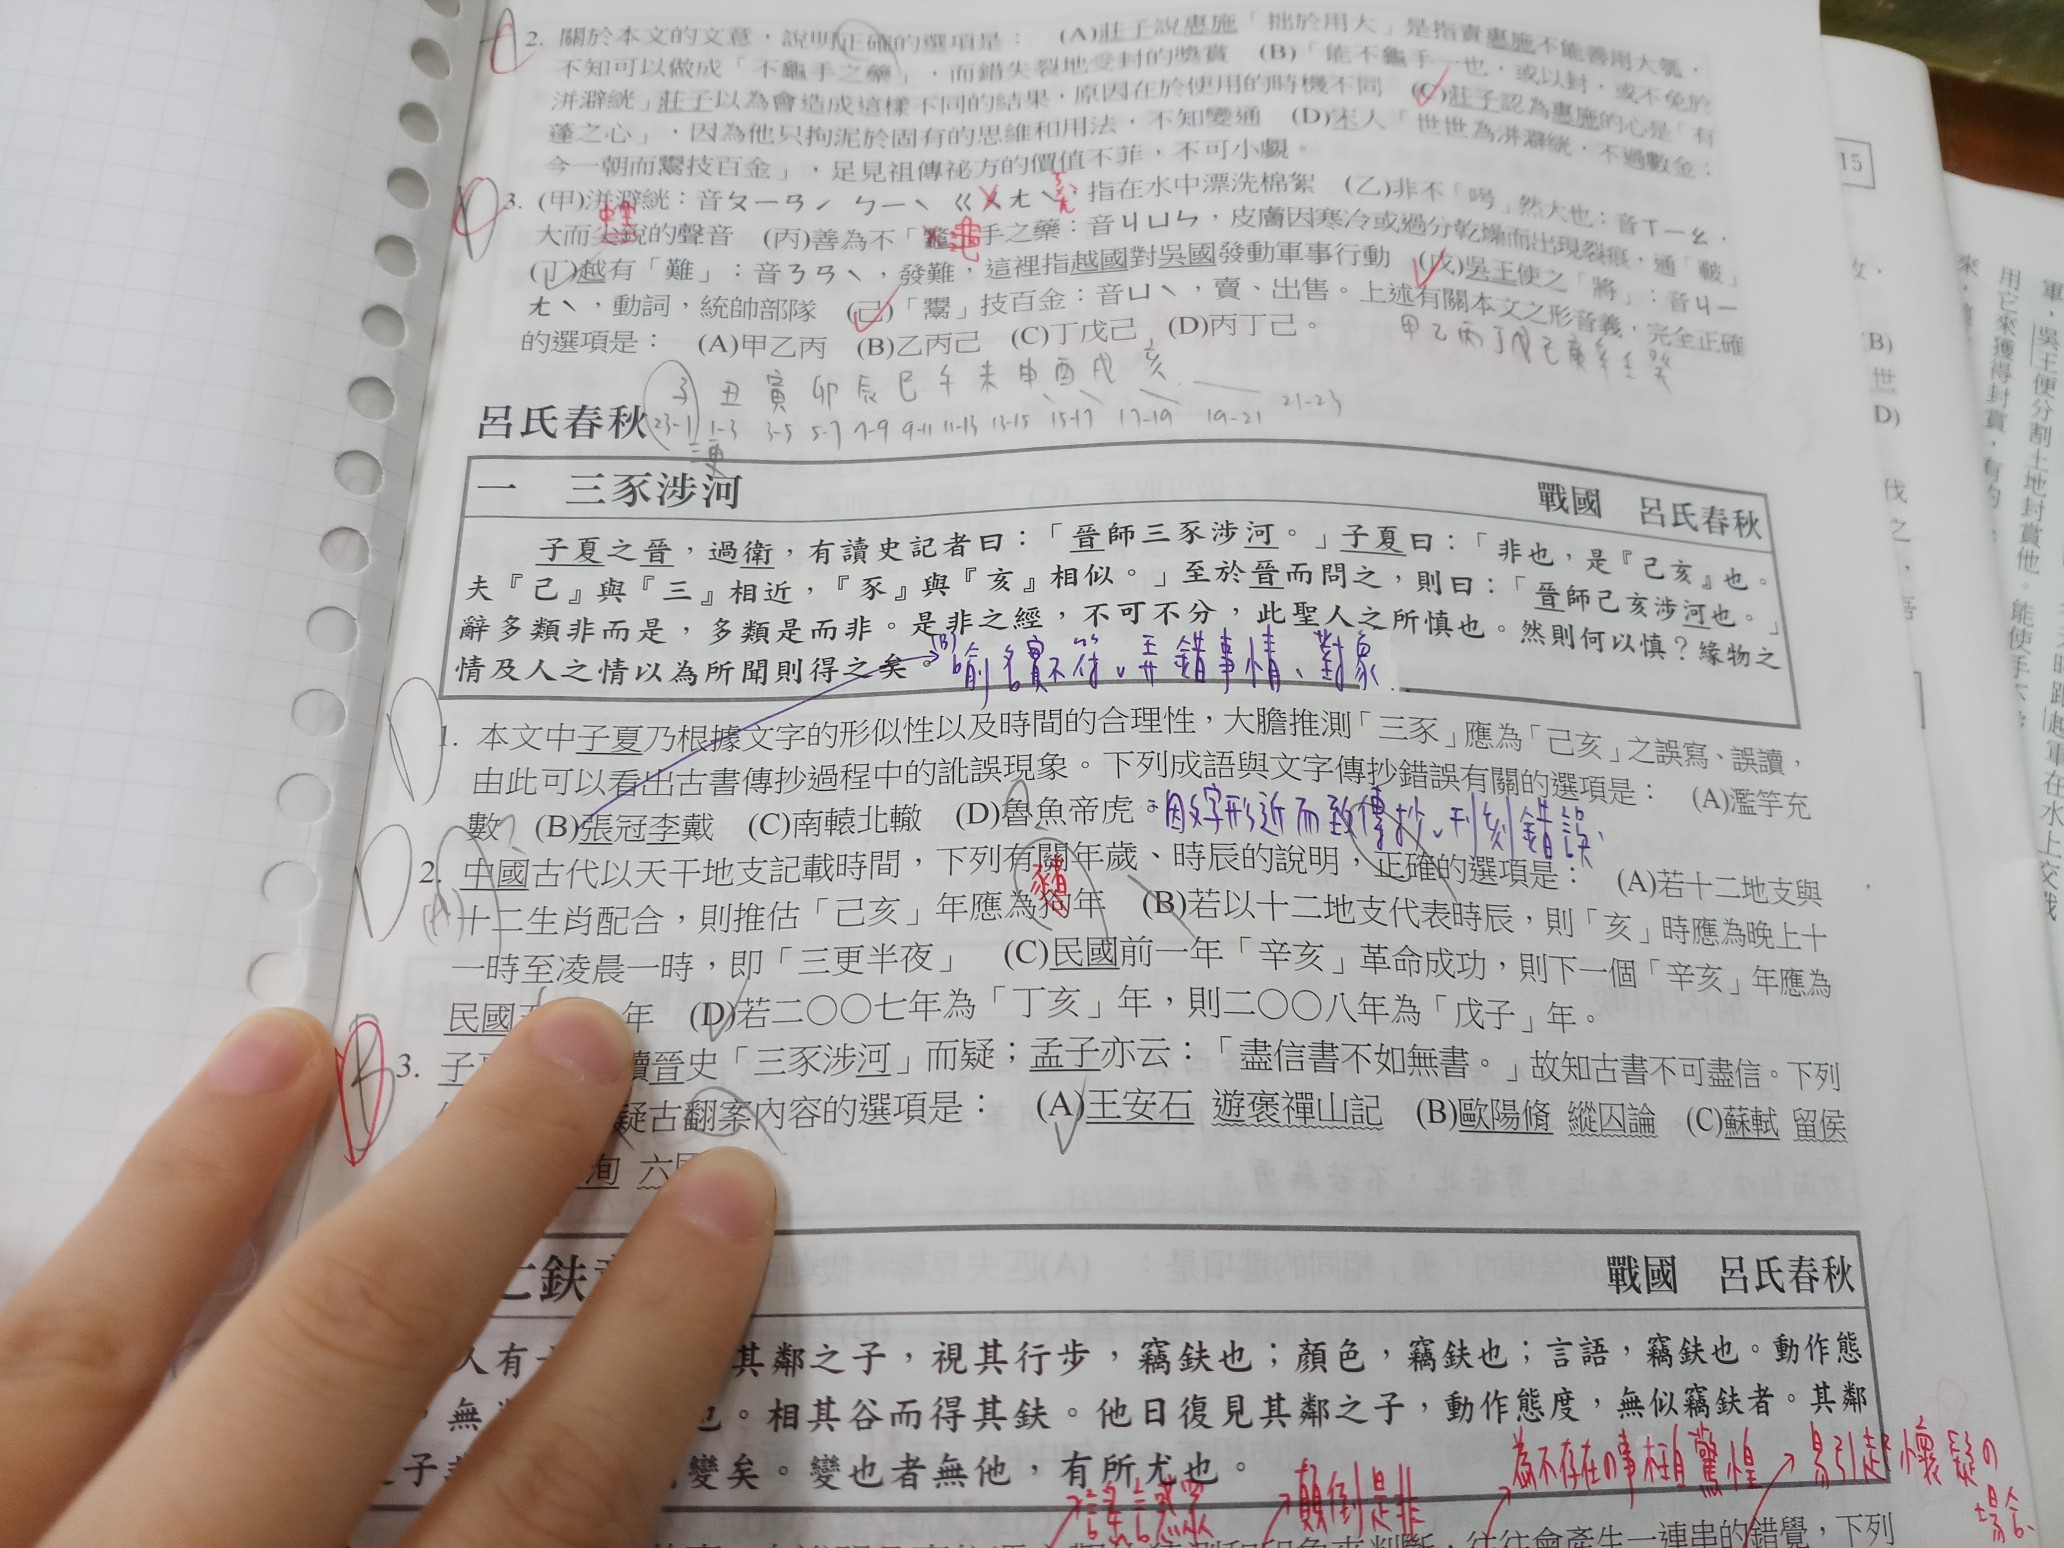 2. 關於本文的文意，說明正確的選項是： (A)莊子說惠施「拙於用大」是指責惠施不能善用大瓠，
不知可以做成「不龜手之藥」，而錯失裂地受封的獎賞 (B)「能不龜手一也，或以封，或不免於
洴澼絖」莊子以為會造成這樣不同的結果，原因在於使用的時機不同 (C)莊子認為惠施的心是「有
蓬之心」，因為他只拘泥於固有的思維和用法，不知變通 (D)宋人「世世為洴澼絖，不過數金；
今一朝而鬻技百金」，足見祖傳祕方的價值不菲，不可小覷。
3. (甲)洴澼絖：音ㄆㄧㄢˊ ㄅㄧˋ ㄍㄨㄤˋ，指在水中漂洗棉絮 (乙)非不「呺」然大也：音ㄒㄧㄠ，
大而尖銳的聲音 (丙)善為不「龜」手之藥：音ㄐㄩㄣ，皮膚因寒冷或過分乾燥而出現裂痕，通「皸」
(丁)越有「難」：音ㄋㄢˋ，發難，這裡指越國對吳國發動軍事行動 (戊)吳王使之「將」：音ㄐㄧ
ㄤˋ，動詞，統帥部隊 (己)「鬻」技百金：音ㄩˋ，賣、出售。上述有關本文之形音義，完全正確
的選項是： (A)甲乙丙 (B)乙丙己 (C)丁戊己 (D)丙丁己。
甲乙丙丁戊己庚辛壬癸
子 丑 寅 卯 辰 巳 午 未 申 酉 戌 亥
23-1 1-3 3-5 5-7 7-9 9-11 11-13 13-15 15-17 17-19 19-21 21-23
三更
呂氏春秋
一 三豕涉河 戰國 呂氏春秋
子夏之晉，過衛，有讀史記者曰：「晉師三豕涉河。」子夏曰：「非也，是『己亥』也。
夫『己』與『三』相近，『豕』與『亥』相似。」至於晉而問之，則曰：「晉師己亥涉河也。」
辭多類非而是，多類是而非。是非之經，不可不分，此聖人之所慎也。然則何以慎？緣物之
情及人之情以為所聞則得之矣。
(B)喻名實不符、弄錯事情、對象
1. 本文中子夏乃根據文字的形似性以及時間的合理性，大膽推測「三豕」應為「己亥」之誤寫、誤讀，
由此可以看出古書傳抄過程中的訛誤現象。下列成語與文字傳抄錯誤有關的選項是： (A)濫竽充
數 (B)張冠李戴 (C)南轅北轍 (D)魯魚帝虎。因文字形近而致傳抄、刊刻錯誤
2. 中國古代以天干地支記載時間，下列有關年歲、時辰的說明，正確的選項是： (A)若十二地支與
豬
十二生肖配合，則推估「己亥」年應為狗年 (B)若以十二地支代表時辰，則「亥」時應為晚上十
一時至凌晨一時，即「三更半夜」 (C)民國前一年「辛亥」革命成功，則下一個「辛亥」年應為
民國 年 (D)若二〇〇七年為「丁亥」年，則二〇〇八年為「戊子」年。
3. 子 讀晉史「三豕涉河」而疑；孟子亦云：「盡信書不如無書。」故知古書不可盡信。下列
疑古翻案內容的選項是： (A)王安石 遊褒禪山記 (B)歐陽脩 縱囚論 (C)蘇軾 留侯
洵 六
亡鈇 戰國 呂氏春秋
人有 其鄰之子，視其行步，竊鈇也；顏色，竊鈇也；言語，竊鈇也。動作態
，無 也。相其谷而得其鈇。他日復見其鄰之子，動作態度，無似竊鈇者。其鄰
之子 變矣。變也者無他，有所尤也。
謠言惑眾 顛倒是非 為不存在の事枉自驚惶 易引起懷疑の場合
往往會產生一連串的錯覺，下列
15